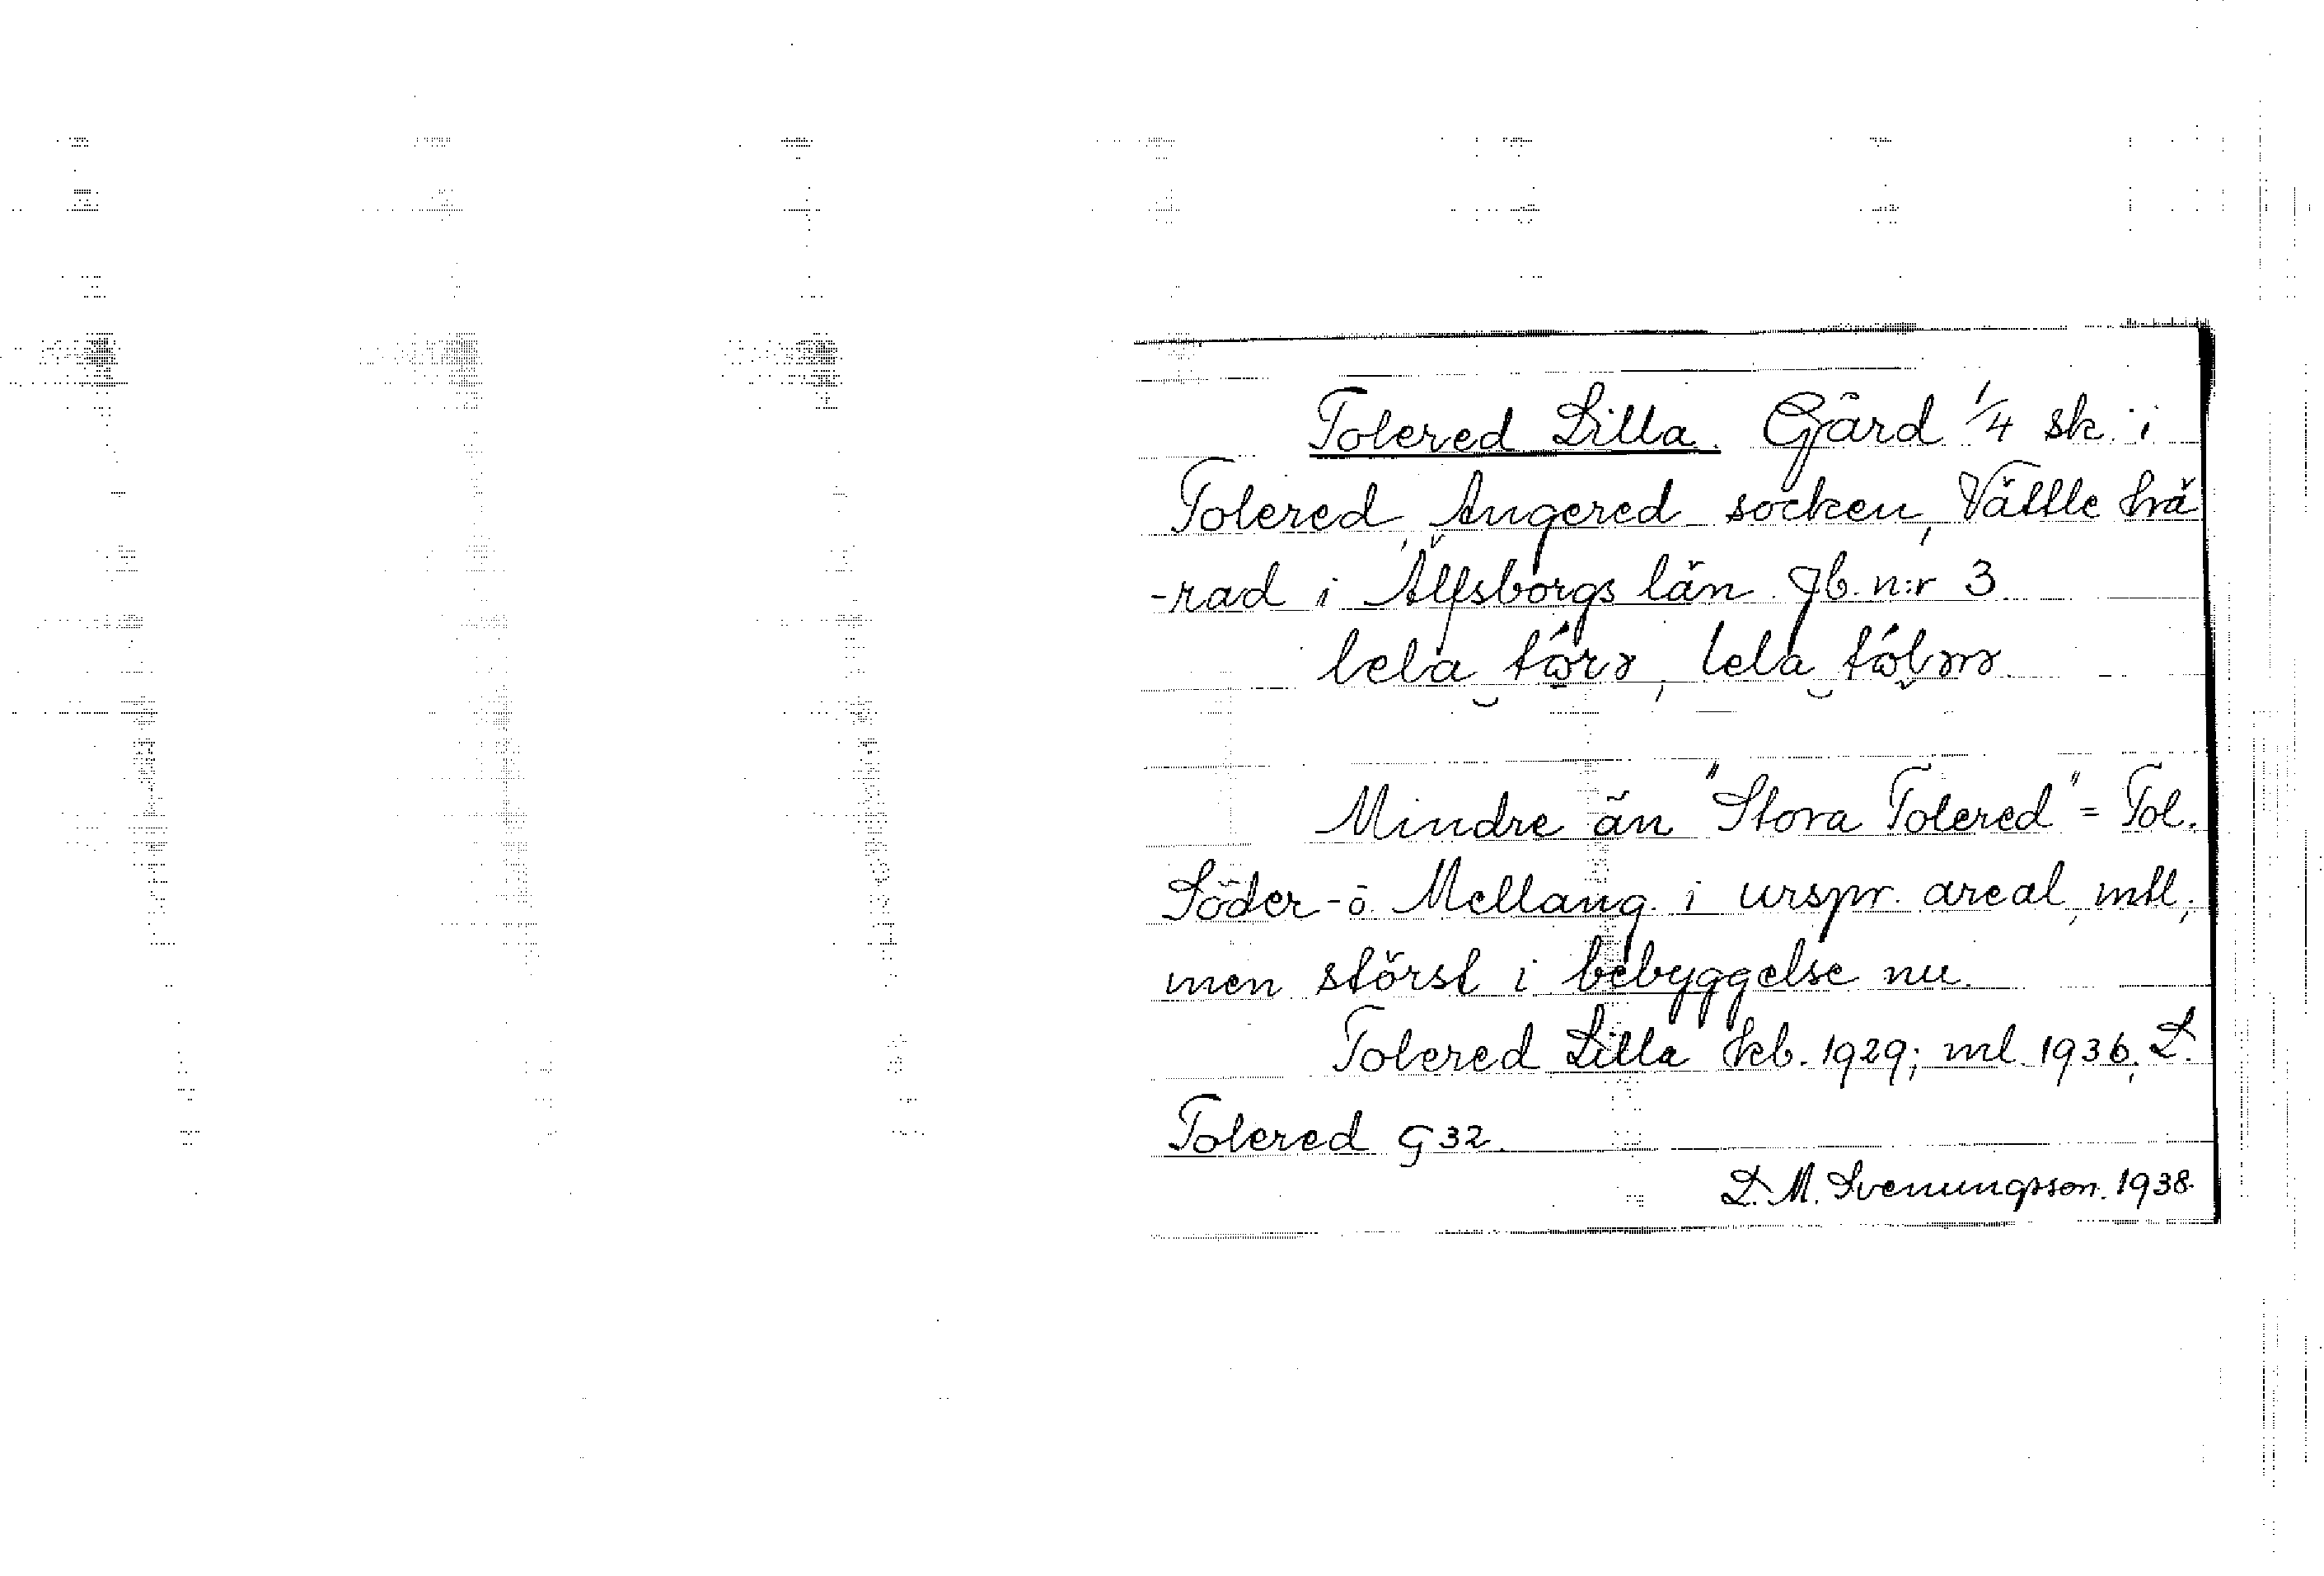 Tolered Lilla. Gård 1/4 sk. i
Tolered, Angered socken, Vättle hä
-rad i Älfsborgs län. Jb. n:r 3
Mindre än "Stora Tolered" = Tol.
Söder- o. Mellang. i urspr. areal, mtl,
men störst i bebyggelse nu.
Tolered Lilla kb. 1929; ml 1936, L.
Tolered G 32.
L. M. Svenungsson. 1938.